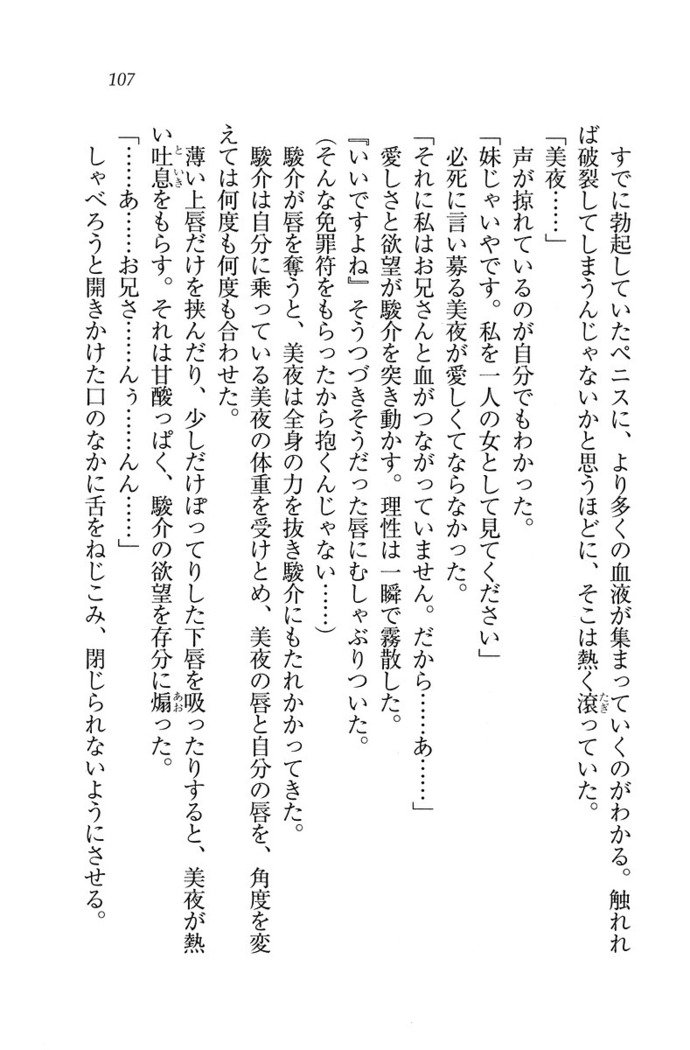 107
すでに勃起していたペニスに、より多くの血液が集まっていくのがわかる。触れれ
ば破裂してしまうんじゃないかと思うほどに、そこは熱く滾っていた。
たぎ
「美夜……」
声が掠れているのが自分でもわかった。
「妹じゃいやです。私を一人の女として見てください」
必死に言い募る美夜が愛しくてならなかった。
「それに私はお兄さんと血がつながっていません。だから……あ……」
愛しさと欲望が駿介を突き動かす。理性は一瞬で霧散した。
『いいですよね』そうつづきそうだった唇にむしゃぶりついた。
(そんな免罪符をもらったから抱くんじゃない……)
駿介が唇を奪うと、美夜は全身の力を抜き駿介にもたれかかってきた。
駿介は自分に乗っている美夜の体重を受けとめ、美夜の唇と自分の唇を、角度を変
えては何度も何度も合わせた。
薄い上唇だけを挟んだり、少しだけぽってりした下唇を吸ったりすると、美夜が熱
い吐息をもらす。それは甘酸っぱく、駿介の欲望を存分に煽った。
といき
あお
「……あ……お兄さ……んぅ……んん……」
しゃべろうと開きかけた口のなかに舌をねじこみ、閉じられないようにさせる。